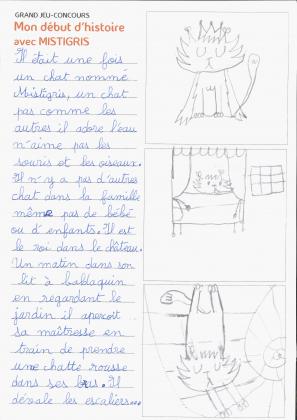 GRAND JEU-CONCOURS
Mon début d'histoire
avec MISTIGRIS
Il était une fois
un chat nommé
Mistigris, un chat
pas comme les
autres il adore l'eau
n'aime pas les
souris et les oiseaux.
Il n'y a pas d'autres
chat dans la famille
même pas de bébé
ou d'enfants. Il est
le roi dans le château.
Un matin dans son
lit à baldaquin
en regardant le
jardin il aperçoit
sa maîtresse en
train de prendre
une chatte rousse
dans ses bras. Il
dévale les escaliers...